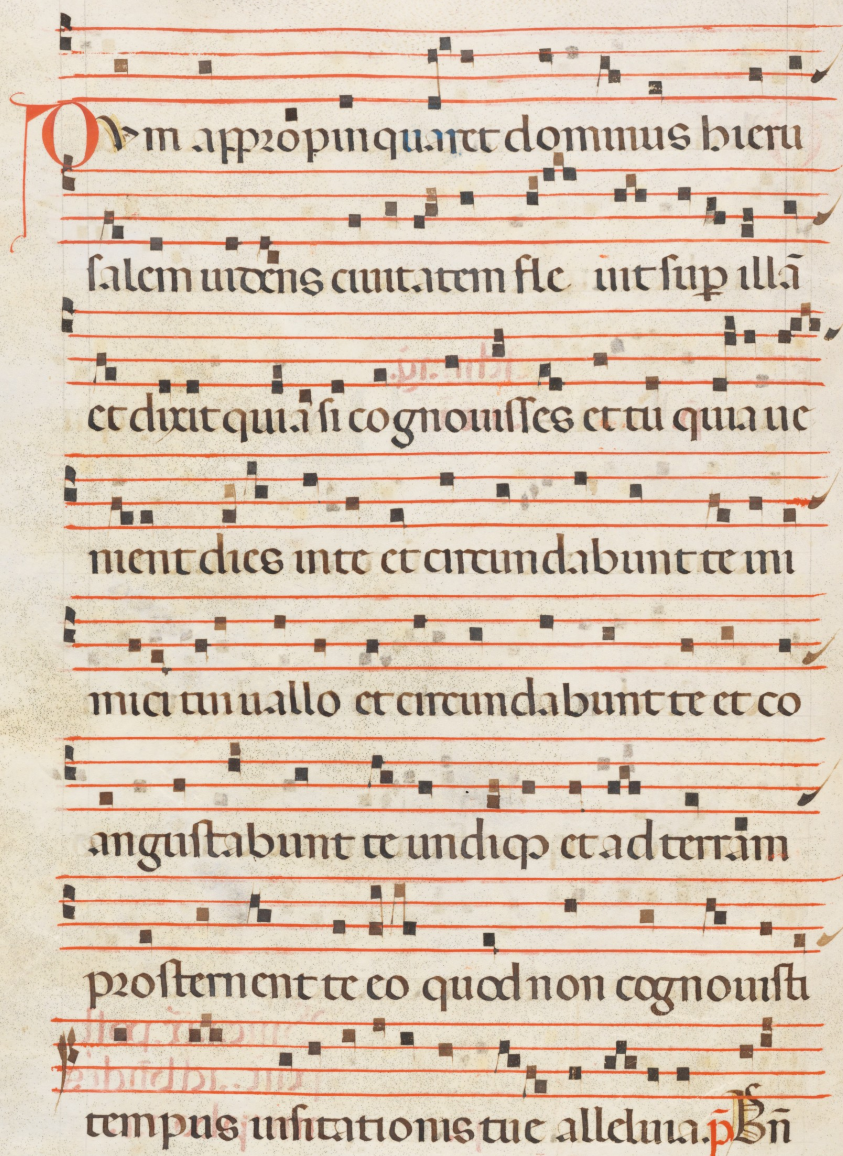 Cum appropinquaret dominus hieru
salem uidens ciuitatem fle uit sup̱ illā
et dixit quia si cognouisses et tu quia ue
nient dies in te et circundabunt te ini
mici tui uallo et circundabunt te et co
angustabunt te undiqꝫ et ad terram
prosternent te eo quod non cognouisti
tempus uisitationis tue alleluia. p̄ Bn̄